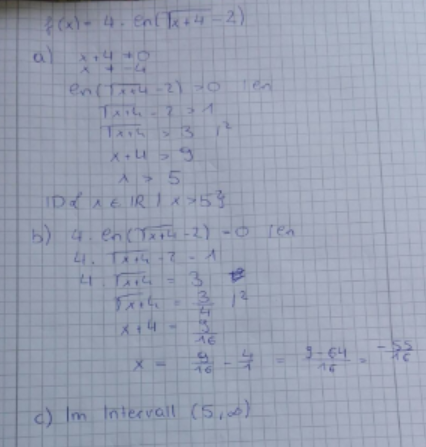 f(x) = 4 · ln(√x+4 - 2)
a) x+4 ≠ 0
x ≠ -4
ln(√x+4 - 2) > 0 | ln
√x+4 - 2 > 1
√x+4 > 3 |²
x+4 > 9
x > 5
ID { x ∈ IR | x > 5}
b) 4 · ln(√x+4 - 2) = 0 | ln
4 · √x+4 - 2 = 1
4 · √x+4 = 3
√x+4 = 3/4 |²
x+4 = 9/16
x = 9/16 - 4/1 = 9-64/16 = -55/16
c) Im Intervall (5,∞)